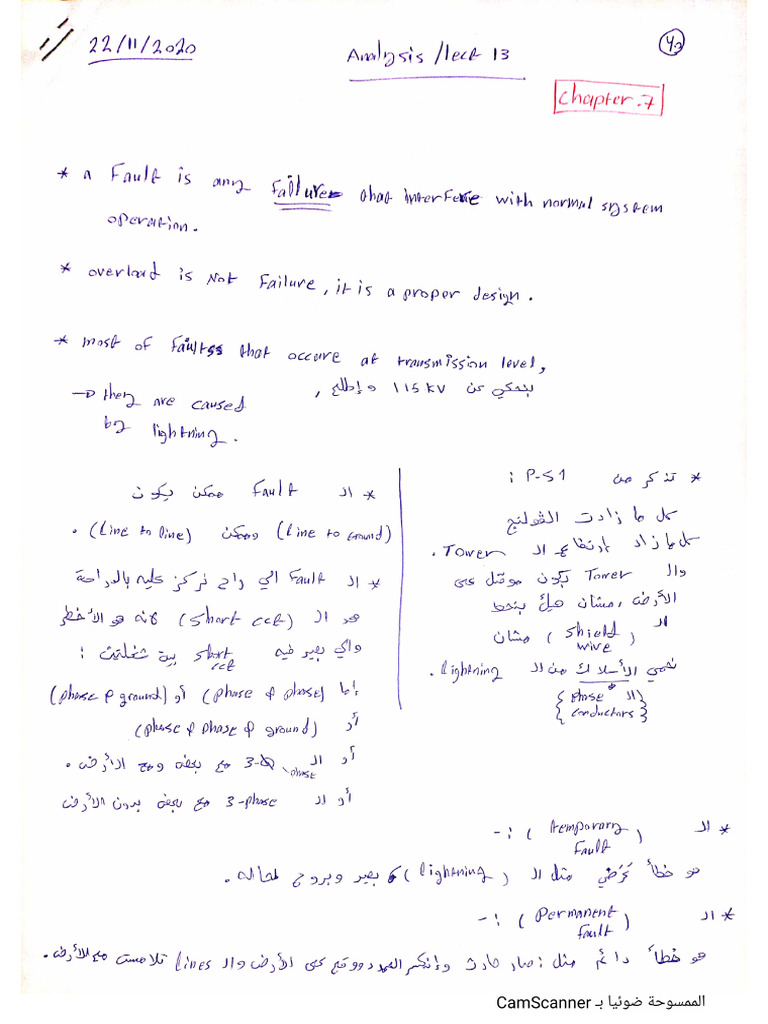 22/11/2020
Analysis/lect 13
Chapter.7
* a Fault is any Failure that interfere with normal system
operation.
* overload is Not Failure, it is a proper design.
* most of Faults that occure at transmission level,
بنحكي عن 115 kV وإطلع,
→ they are caused
by lightning.
* تذكر من P.S1 :
كل ما زادت الڤولتج
كل ما زاد إرتفاع الـ Tower.
والـ Tower بكون موصل على
الأرض, مشان هيك بنحط
الـ (shield wire) مشان
نحمي الأسلاك من الـ lightning.
{الـ phase conductors}
* الـ Fault ممكن يكون
(Line to ground) وممكن (Line to line).
* الـ Fault الي راح نركز عليه بالدراسة
هو الـ (short cct) لانه هو الأخطر
والي بصير فيه short cct بين شغلتين :
إما (phase & phase) أو (phase & ground)
أو (phase & phase & ground)
أو الـ 3-phase مع بعض ومع الأرض.
أو الـ 3-phase مع بعض بدون الأرض
* الـ (temporary Fault) :-
هو خطأ عَرَضي مثل الـ (lightning) بصير وبروح لحاله.
* الـ (Permanent Fault) :-
هو خطأ دائم مثل : صار حادث وإنكسر العمود ووقع على الأرض والـ Lines تلامست مع الأرض.
الممسوحة ضوئيا بـ CamScanner